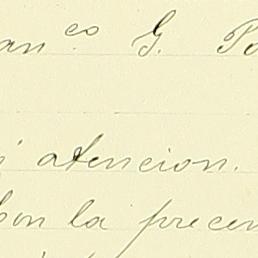 an.co G. Po
atencion.
con la precen